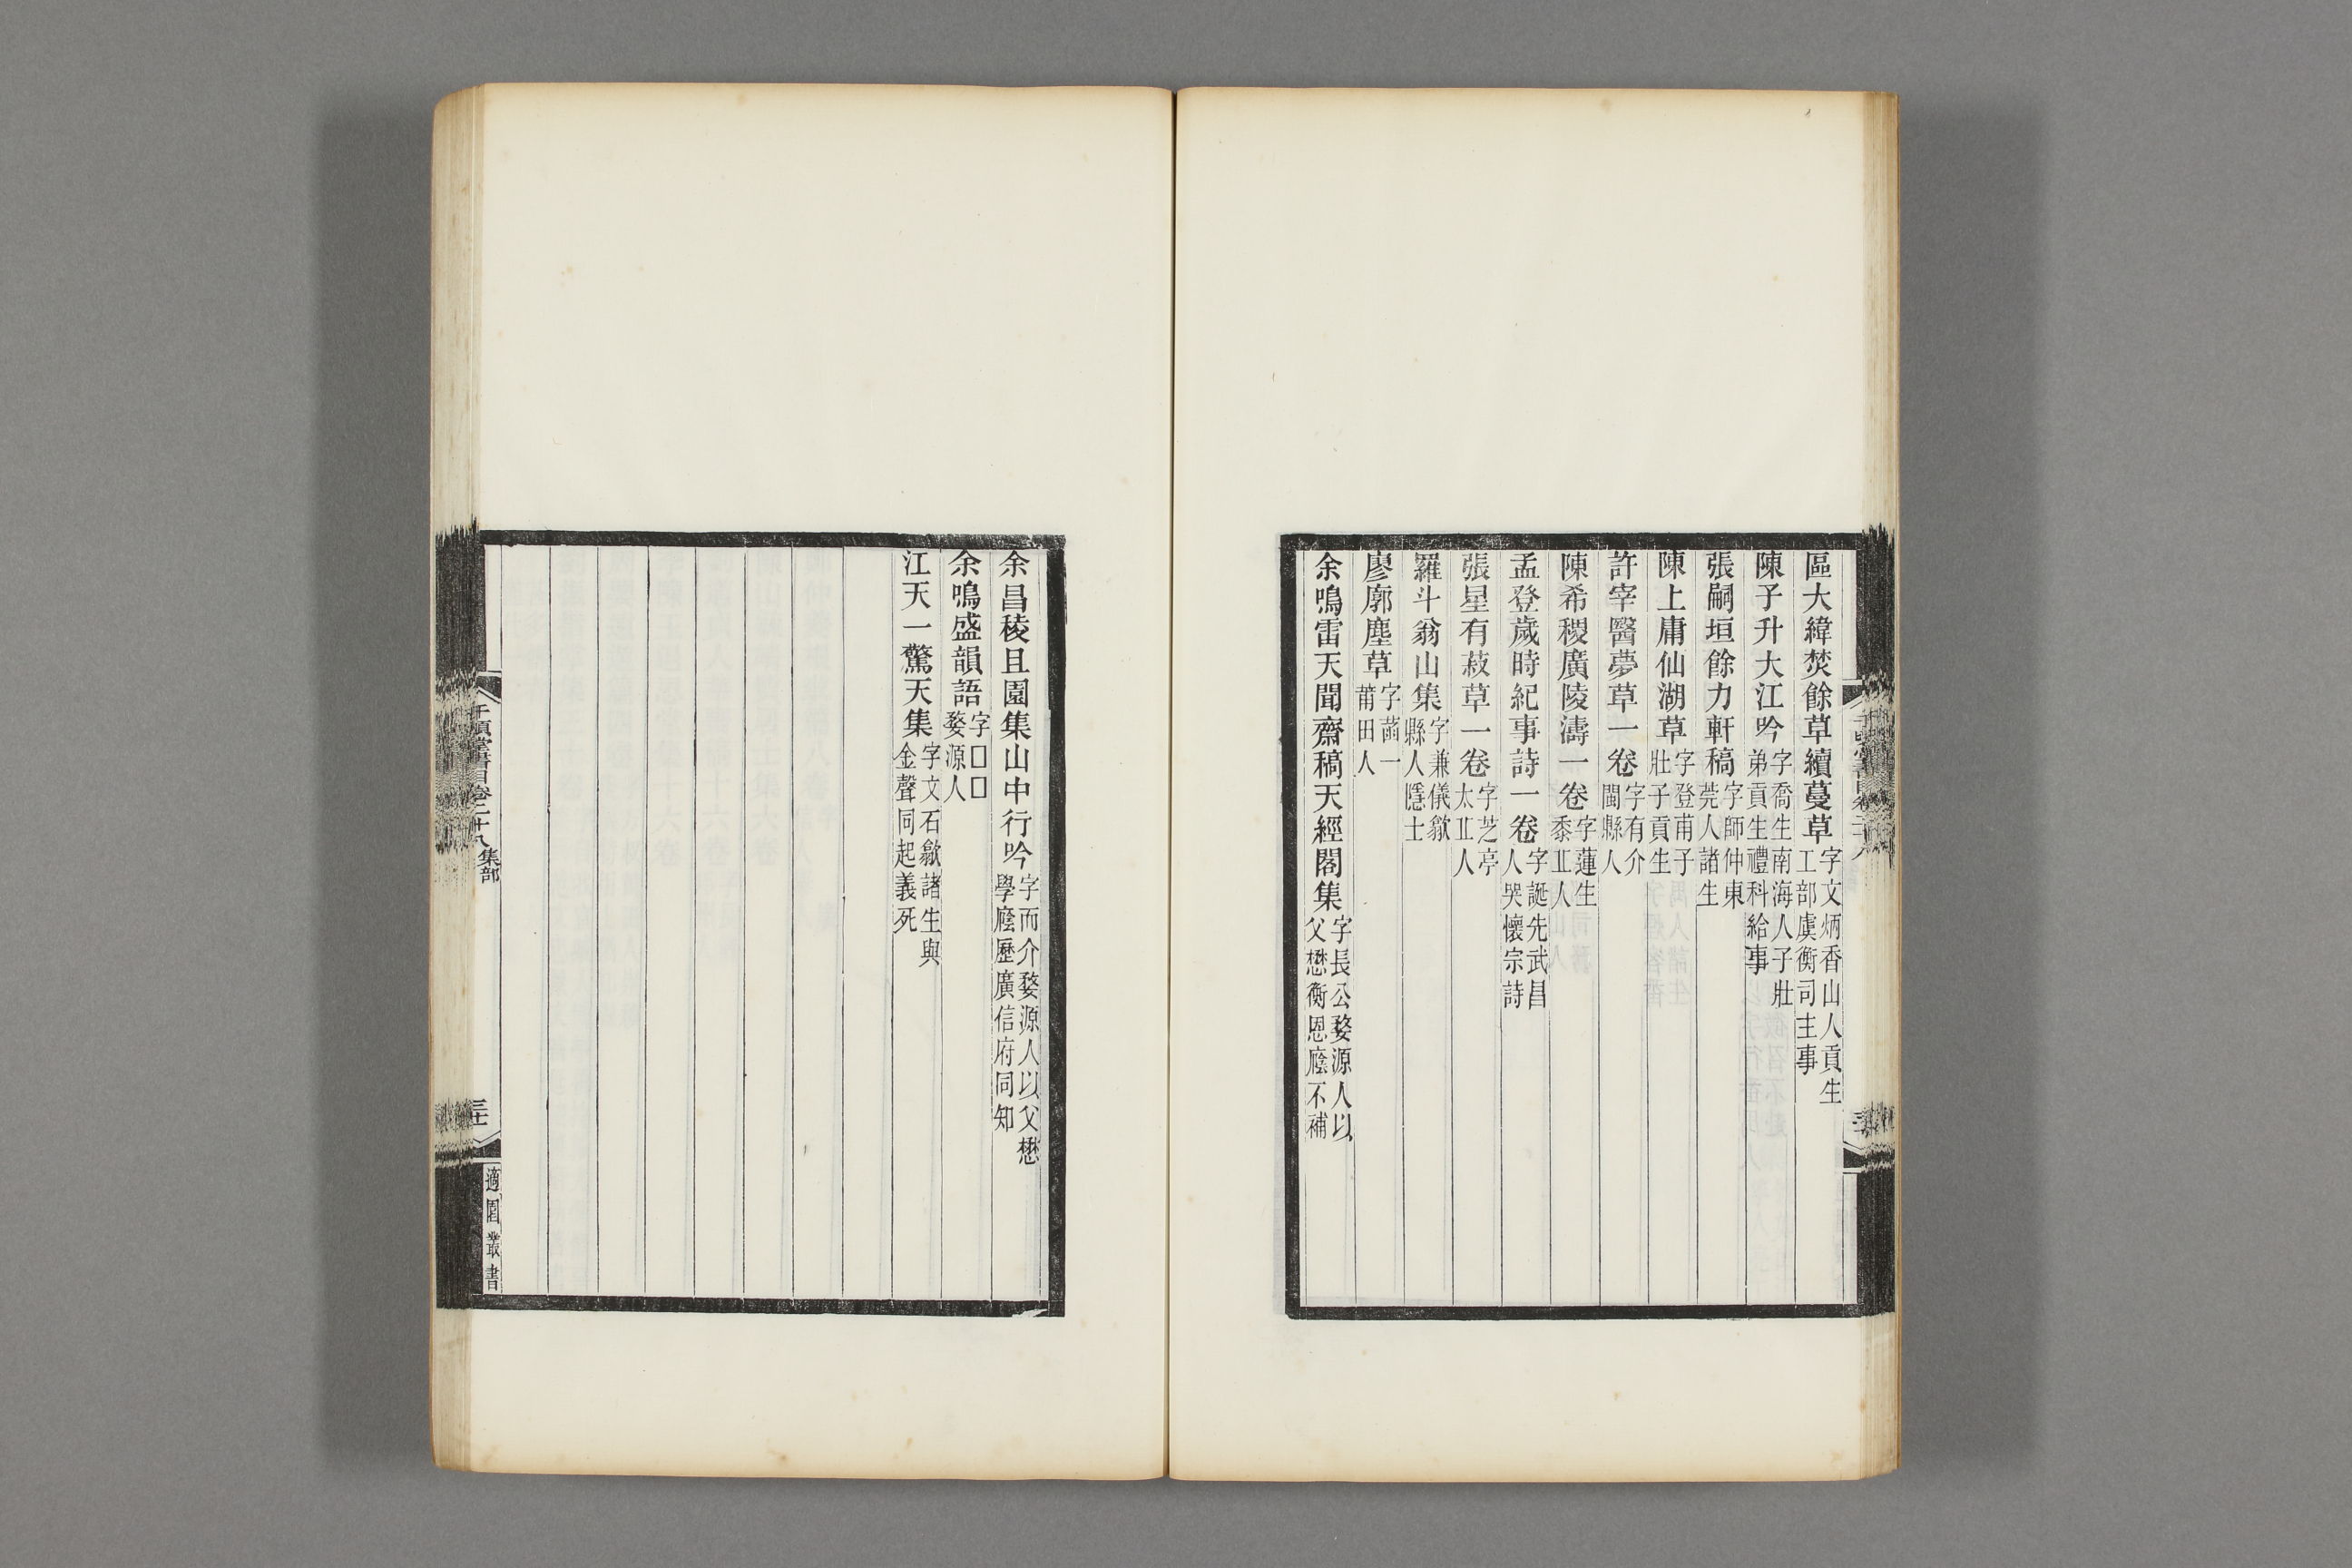 區大緯焚餘草續蔓草字文炳香山人貢生工部虞衡司主事
陳子升大江吟字喬生南海人子壯弟貢生禮科給事
張嗣垣餘力軒稿字師仲東莞人諸生
陳上庸仙湖草字登甫子壯子貢生
許宰醫夢草一卷字有介閩縣人
陳希稷廣陵濤一卷字蓮生黍丘人
孟登歲時紀事詩一卷字誕先武昌人哭懷宗詩
張星有菽草一卷字芝亭太丘人
羅斗翁山集字兼儀歙縣人隱士
廖廓塵草字菡一莆田人
余鳴雷天聞齋稿天經閣集字長公婺源人以父懋衡恩廕不補
余昌稜且園集山中行吟字而介婺源人以父懋學廕歷廣信府同知
余鳴盛韻語字□□婺源人
江天一驚天集字文石歙諸生與金聲同起義死
千頃堂書目卷二十八 集部
適園叢書